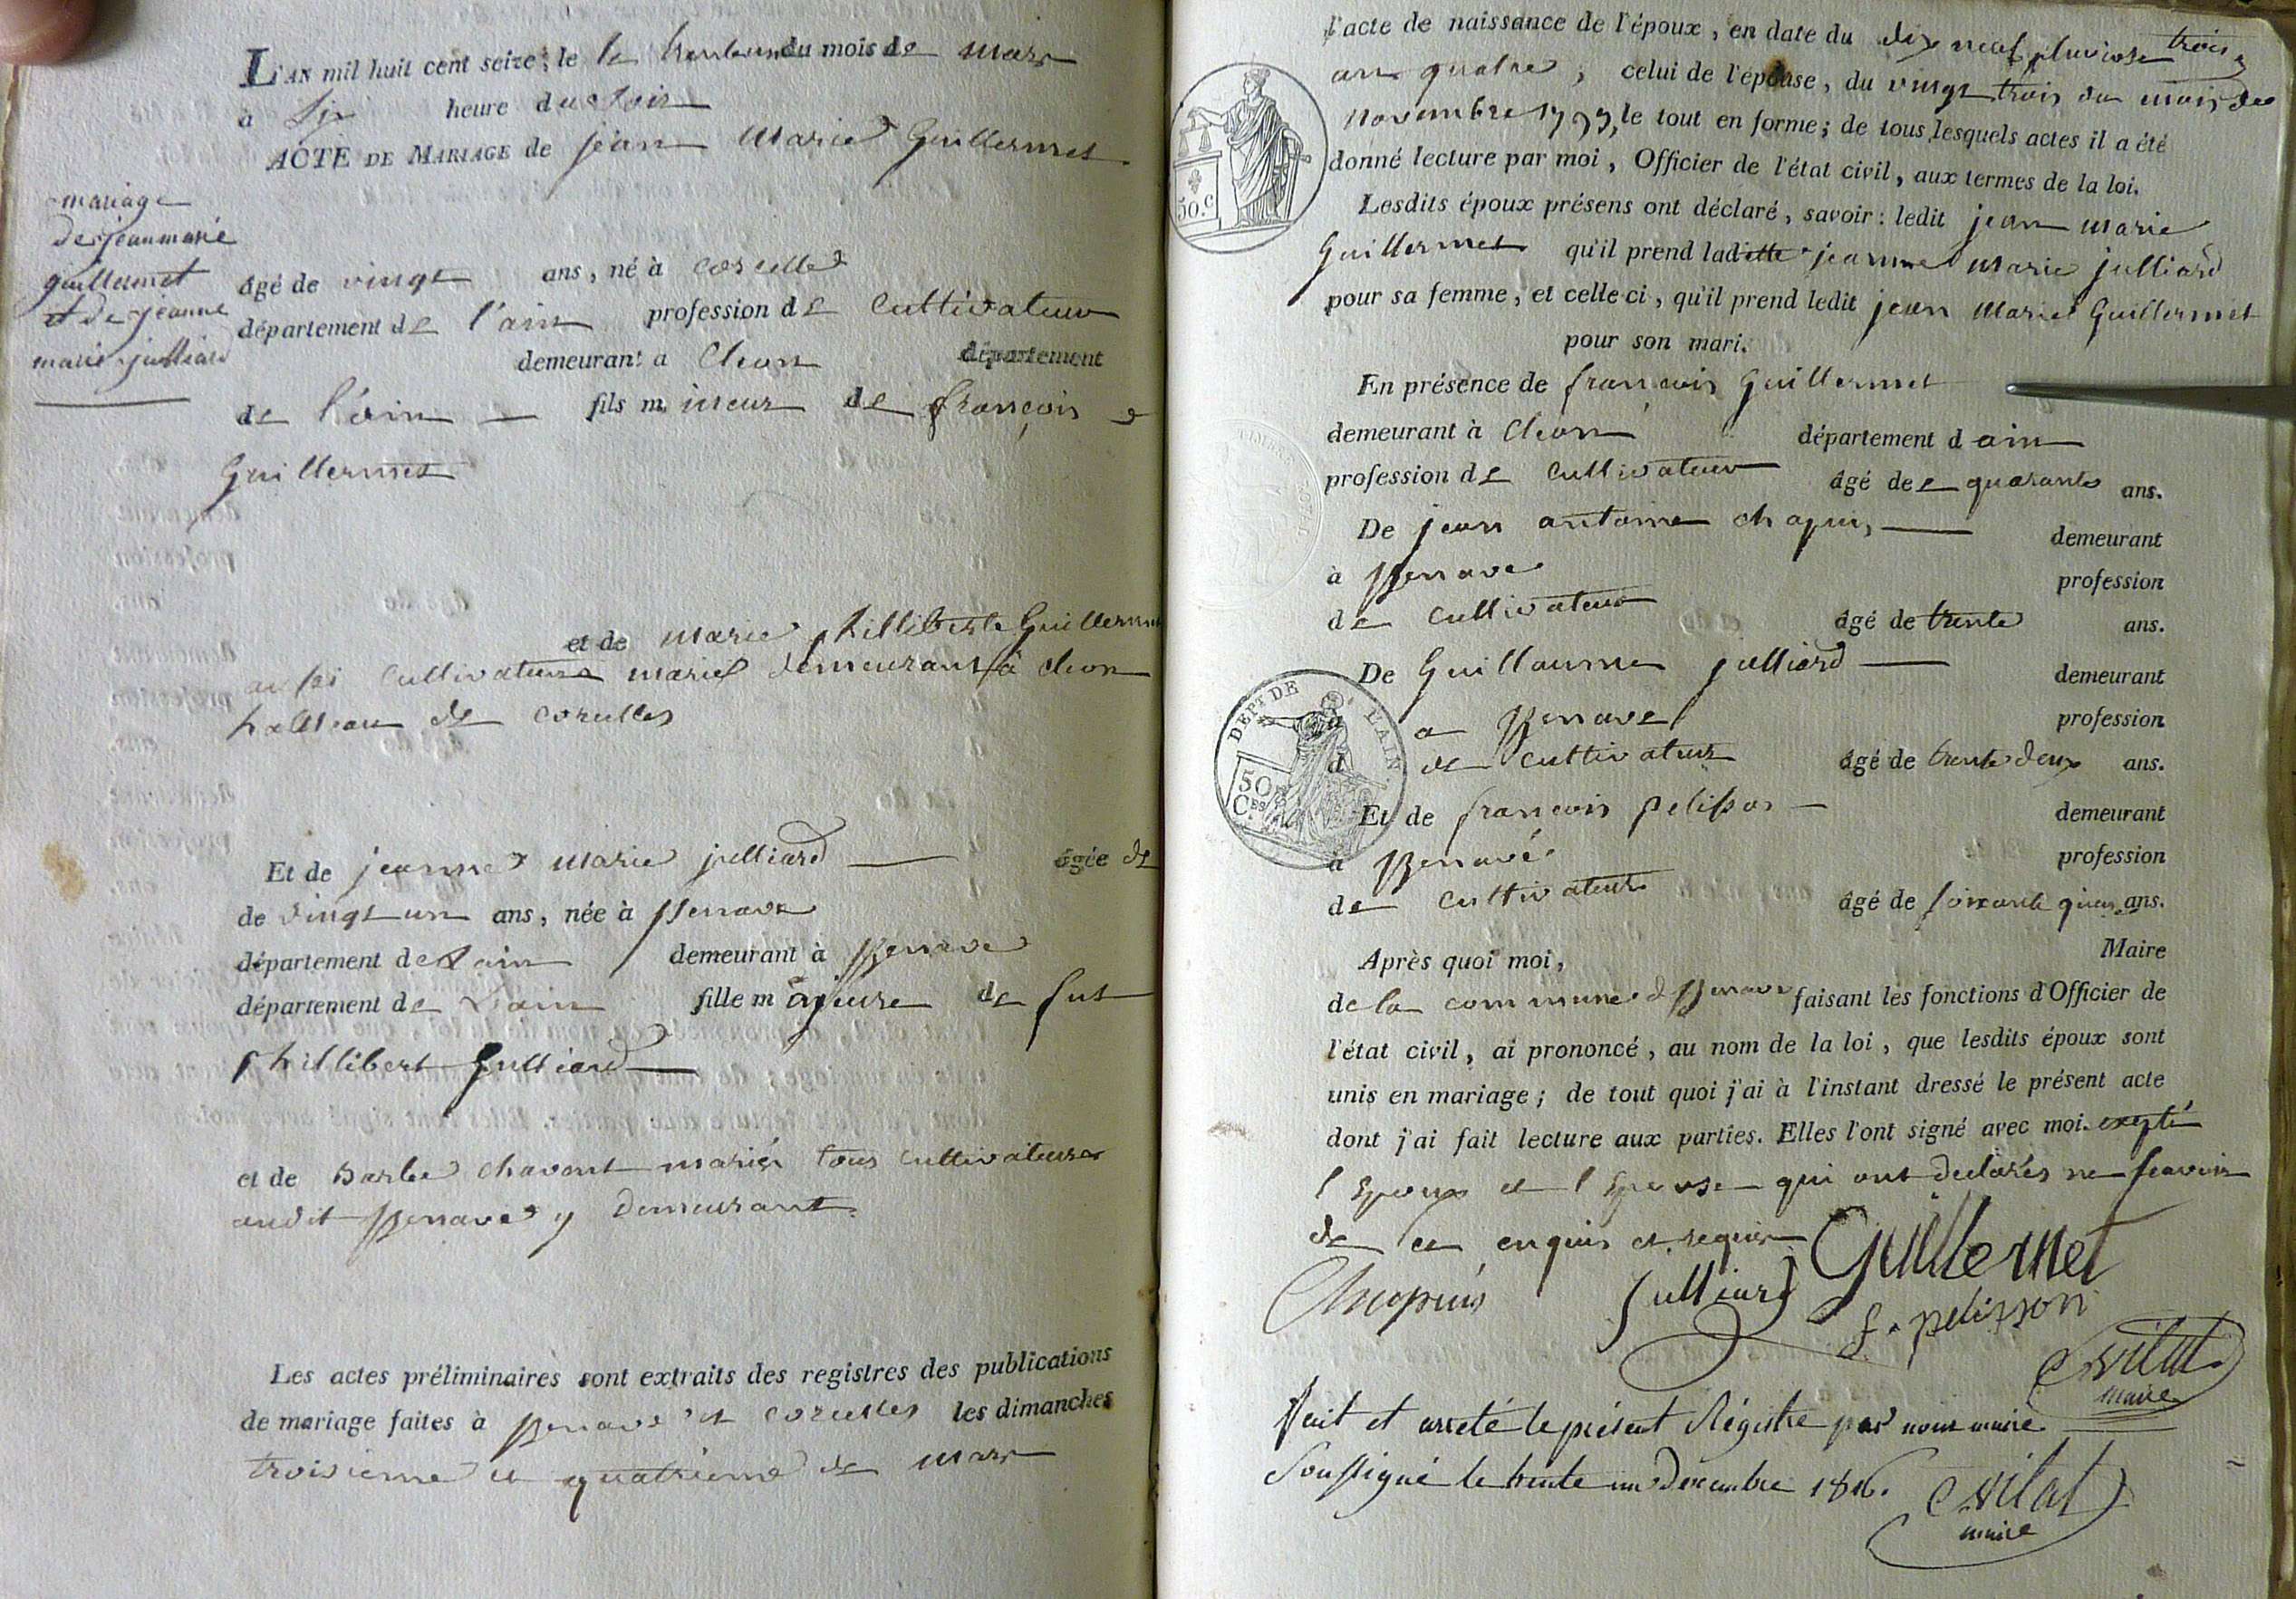 L'AN mil huit cent seize, le le trente un du mois de mars
à six heure du soir
ACTE DE MARIAGE de jean Marie Guillermet
mariage
de jean marie
guillermet
et de jeanne
marie julliard
âgé de vingt ans, né à corcelles
département de l'ain profession de Cultivateur
demeurant a Cleon département
de l'ain fils mineur de françois
Guillermet
et de marie philliberte Guillermet
aussi Cultivateurs mariés demeurant à cleon
hameau de corcelles
Et de jeanne marie julliard âgée de
de vingt un ans, née à
département de Lain demeurant à
département de Lain fille majeure de fut
phillibert Julliard
et de Barbe chavent mariés tous cultivateurs
audit y Demeurant
Les actes préliminaires sont extraits des registres des publications
de mariage faites à et corcelles les dimanches
troisieme et quatrieme de mars
l'acte de naissance de l'époux, en date du dix neuf pluviose trois
an quatre, celui de l'épouse, du vingt trois du mois de
novembre le tout en forme; de tous lesquels actes il a été
donné lecture par moi, Officier de l'état civil, aux termes de la loi.
Lesdits époux présens ont déclaré, savoir: ledit jean marie
Guillermet qu'il prend laditte jeanne marie julliard
pour sa femme, et celle ci, qu'il prend ledit jean Marie Guillermet
pour son mari.
En présence de françois Guillermet
demeurant à Cleon département d ain
profession de Cultivateur âgé de quarante ans.
De jean antoine chapuis demeurant
à profession
de Cultivateur âgé de trente ans.
De Guillaume julliard demeurant
à a profession
d de cultivateur âgé de trente deux ans.
Et de françois pelisson demeurant
à profession
de Cultivateur âgé de soixante ans.
Après quoi moi, Maire
de la commune d faisant les fonctions d'Officier de
l'état civil, ai prononcé, au nom de la loi, que lesdits époux sont
unis en mariage; de tout quoi j'ai à l'instant dressé le présent acte
dont j'ai fait lecture aux parties. Elles l'ont signé avec moi. exepté
l Epoux et l Epouse qui ont declarés ne scavoir
de ce enquis et requis
Guillermet
Chapuis Julliard
f. pelisson
maire
Fait et arreté le présent Régistre par nous maire
Soussigné le trente un Decembre 1816.
maire
50.C
DEPT DE L'AIN
50 CES